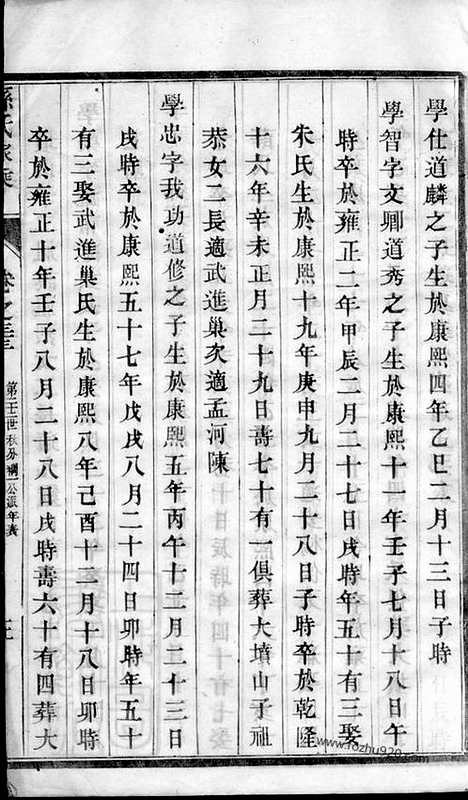 學仕道麟之子生於康熙四年乙巳二月十三日子時
學智字文卿道秀之子生於康熙十一年壬子七月十八日午
時卒於雍正二年甲辰二月二十七日戌時年五十有三娶
朱氏生於康熙十九年庚申九月二十八日子時卒於乾隆
十六年辛未正月二十九日壽七十有一俱葬大墳山子祖
恭女二長適武進巢次適孟河陳
學忠字我功道修之子生於康熙五年丙午十二月二十三日
戌時卒於康熙五十七年戊戌八月二十四日卯時年五十
有三娶武進巢氏生於康熙八年己酉十二月十八日卯時
卒於雍正十年壬子八月二十八日戌時壽六十有四葬大
孫氏家乘
卷之三
世秋分 公派年表
www.fozhu920.com